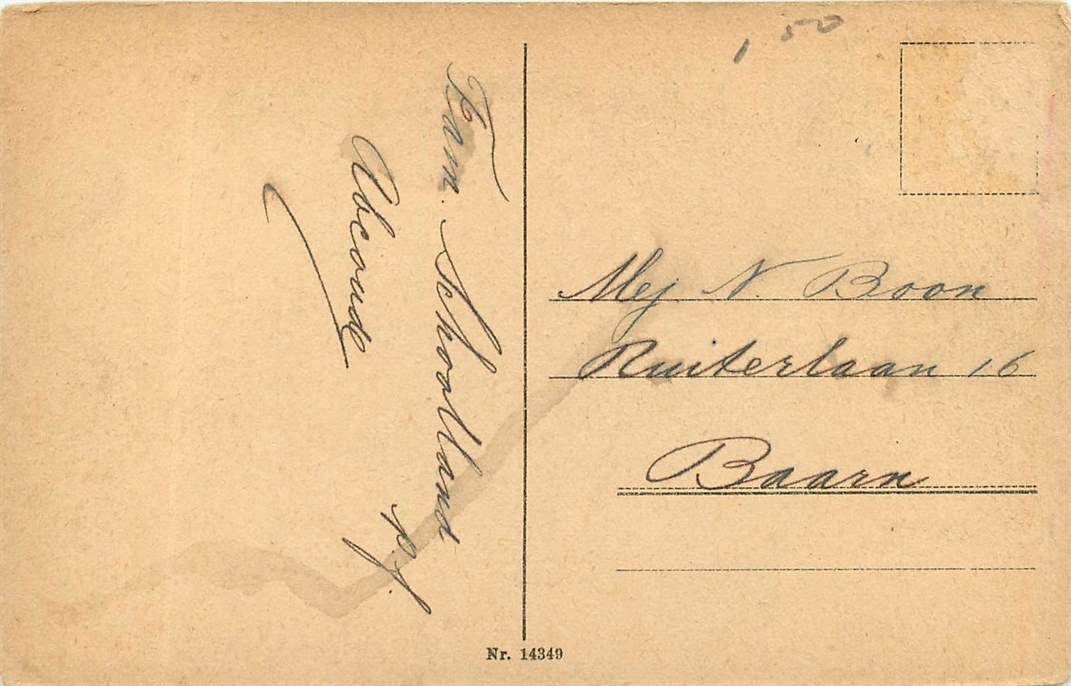 1 50
Fam. Schoolland
Abcoude
p.f.
Mej. N. Boon
Ruiterlaan 16
Baarn
Nr. 14349